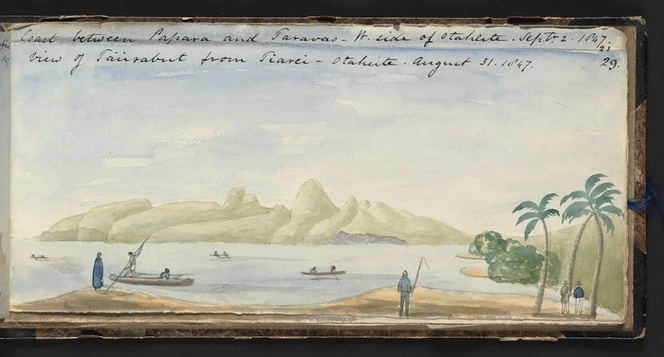 Coast between Papara and Taravao - W. side of Otaheite. Septr. 2. 1847.
View of Taiirabut from Tiarei - Otaheite. August 31. 1847.
29.